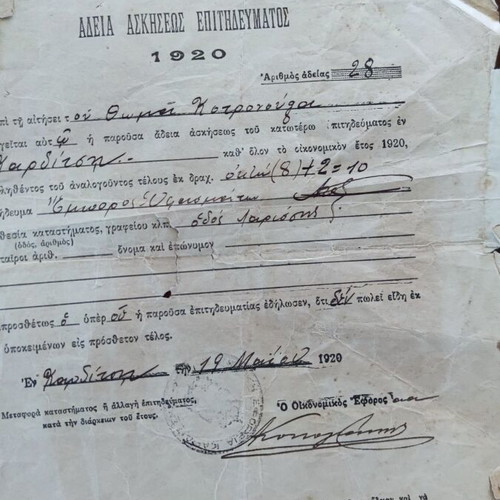 ΑΔΕΙΑ ΑΣΚΗΣΕΩΣ ΕΠΙΤΗΔΕΥΜΑΤΟΣ
1920
Ἀριθμὸς ἀδείας 28
ἐπὶ τῇ αἰτήσει τοῦ Θωμᾶ Κοτρονούλα
γεῖται αὐτῷ ἡ παροῦσα ἄδεια ἀσκήσεως τοῦ κατωτέρω ἐπιτηδεύματος ἐν
Καρδίτσῃ καθ' ὅλον τὸ οἰκονομικὸν ἔτος 1920,
ληθέντος τοῦ ἀναλογοῦντος τέλους ἐκ δραχ. ὀκτώ (8)+2=10
τήδευμα Ἔμπορος
θεσία καταστήματος, γραφείου κλπ. ὁδὸς Λαρίσσης
(ὁδός, ἀριθμὸς)
ταῖροι ἀριθ. ὄνομα καὶ ἐπώνυμον
προσθέτως ὁ ὑπὲρ οὗ ἡ παροῦσα ἐπιτηδευματίας ἐδήλωσεν, ὅτι δὲν πωλεῖ εἴδη ἐκ
ὑποκειμένων εἰς πρόσθετον τέλος.
Ἐν Καρδίτσῃ τῇ 19 Μαΐου 1920
Μεταφορὰ καταστήματος ἢ ἀλλαγὴ ἐπιτηδεύματος,
κατὰ τὴν διάρκειαν τοῦ ἔτους.
Ὁ Οἰκονομικὸς Ἔφορος